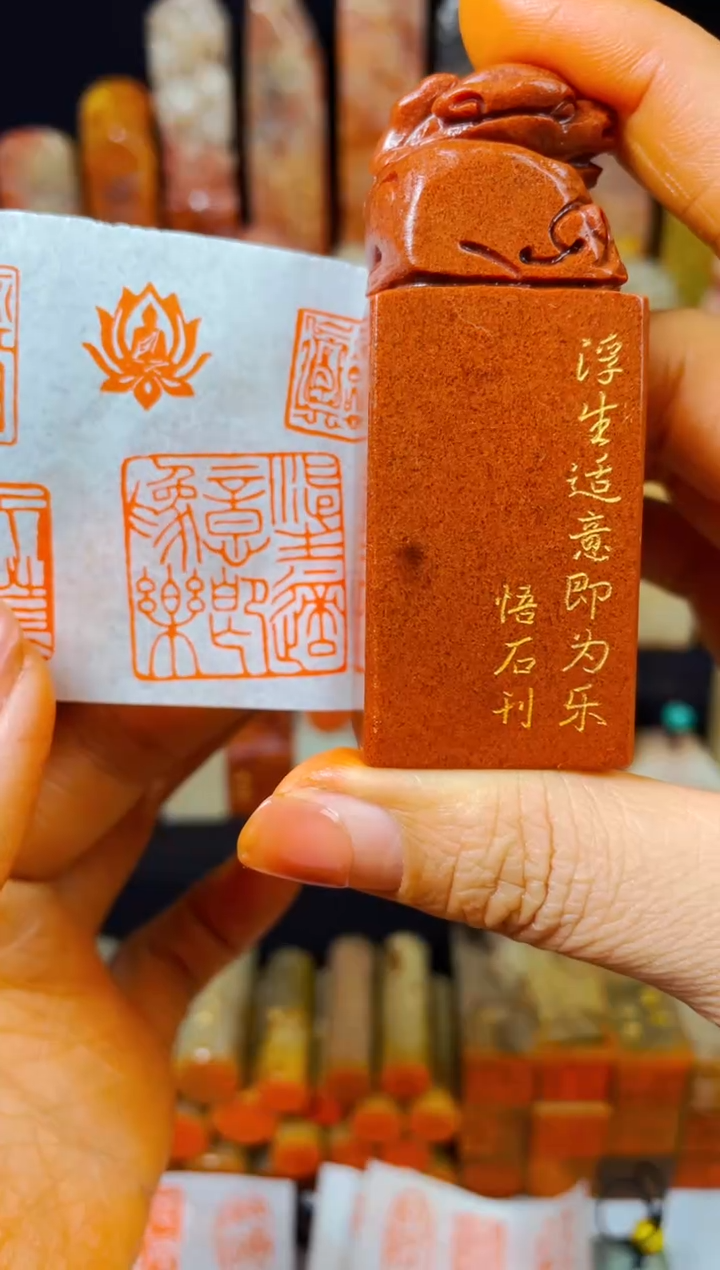 浮生适意即为乐
悟石刊
浮生適
意即
為樂